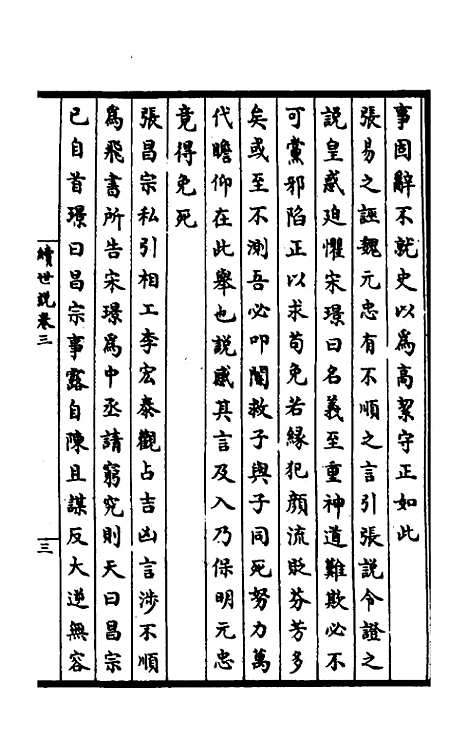 事固辭不就史以為高絜守正如此
張易之誣魏元忠有不順之言引張說令證之
說皇惑迫懼宋璟曰名義至重神道難欺必不
可黨邪陷正以求苟免若緣犯顏流貶芬芳多
矣或至不測吾必叩閤救子與子同死努力萬
代瞻仰在此舉也說感其言及入乃保明元忠
竟得免死
張昌宗私引相工李宏泰觀占吉凶言涉不順
為飛書所告宋璟為中丞請窮究則天曰昌宗
已自首璟曰昌宗事露自陳且謀反大逆無容
續世說卷三
三